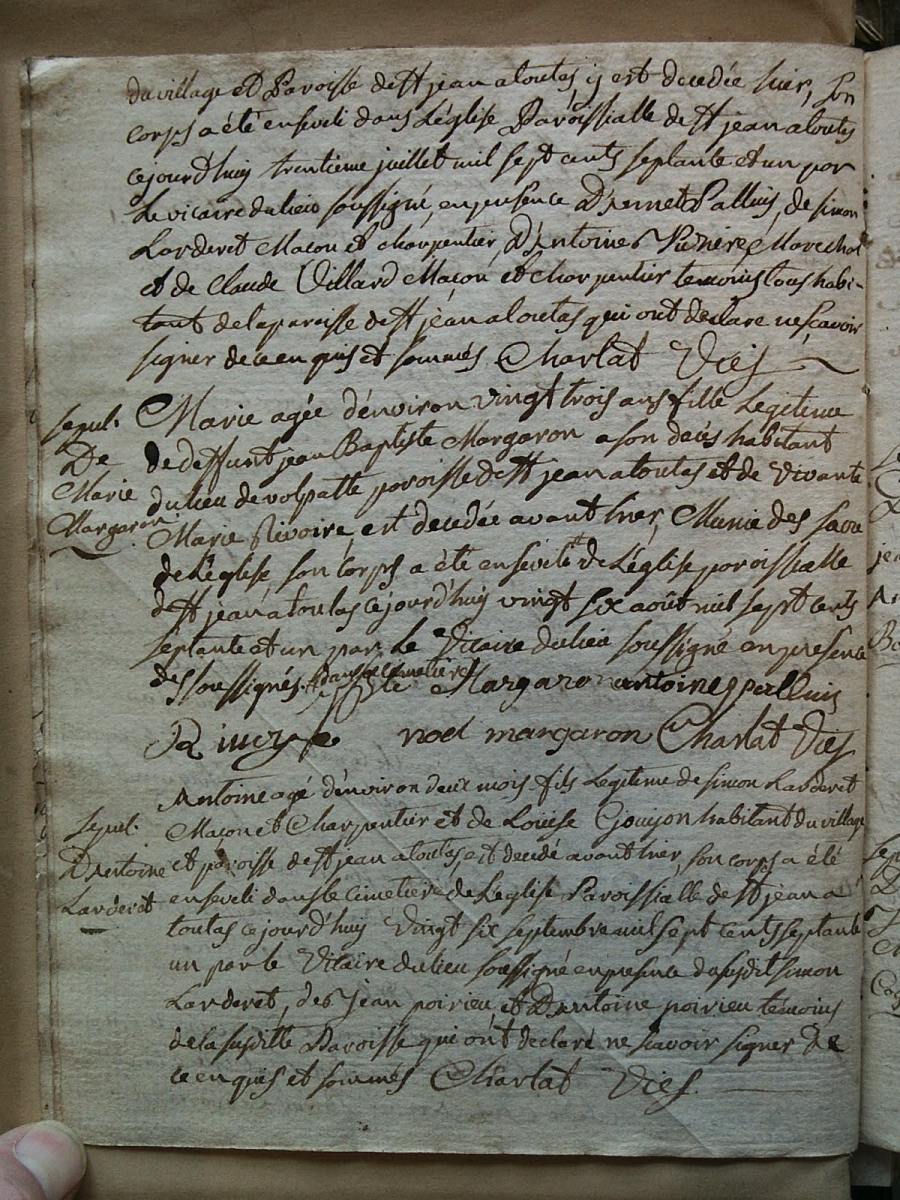 du village et Paroisse de St jean atoutas, y est decedée hier, son
corps a été enseveli dans L'église Paroissialle de St jean atoutas
cejourd'huy trentieme juillet mil sept cents septante et un par
Le vicaire du lieu soussigné, en presence D' Palluis, de simon
Larderet Macon et charpentier, D'Antoines Marechal
et de Claude Villard Macon et charpentier temoins tous habi-
tant de la paroisse de St jean atoutas qui ont déclare ne scavoir
signer de ce enquis et sommés Charlat Vics
sepul.
De
Marie
Margaron
Marie agée d'environ vingt trois ans fille Legitime
de deffunt jean Baptiste Margaron a son déces habitant
du lieu de volpatte paroisse de St jean atoutas et de vivante
Marie Rivoire, est decedée avant hier, Munie des sacre
de L'église, son corps a été enseveli de L'église paroissialle
de St jean atoutas cejourd'huy vingt six août mil sept cents
septante et un par Le Vicaire du lieu soussigné en presence
des soussignés. dans le cimetiere Margaron antoine palluis
noel margaron Charlat Vics
Sepul.
D'Antoine
Larderet
Antoine agé d'environ deux mois fils Legitime de simon Larderet
Macon et Charpentier et de Louise Goujon habitant du village
et paroisse de St jean atoutas est decedé avant hier, son corps a été
enseveli dans le cimetiere de L'église Paroissialle de St jean a
toutas cejourd'huy Vingt six septembre mil sept cents septante
un par le Vicaire du lieu soussigné en presence du susdit simon
Larderet, des Jean poirieu, et D'Antoine poirieu témoins
de la susditte Paroisse qui ont declaré ne scavoir signer de
ce enquis et sommés Charlat Vics.